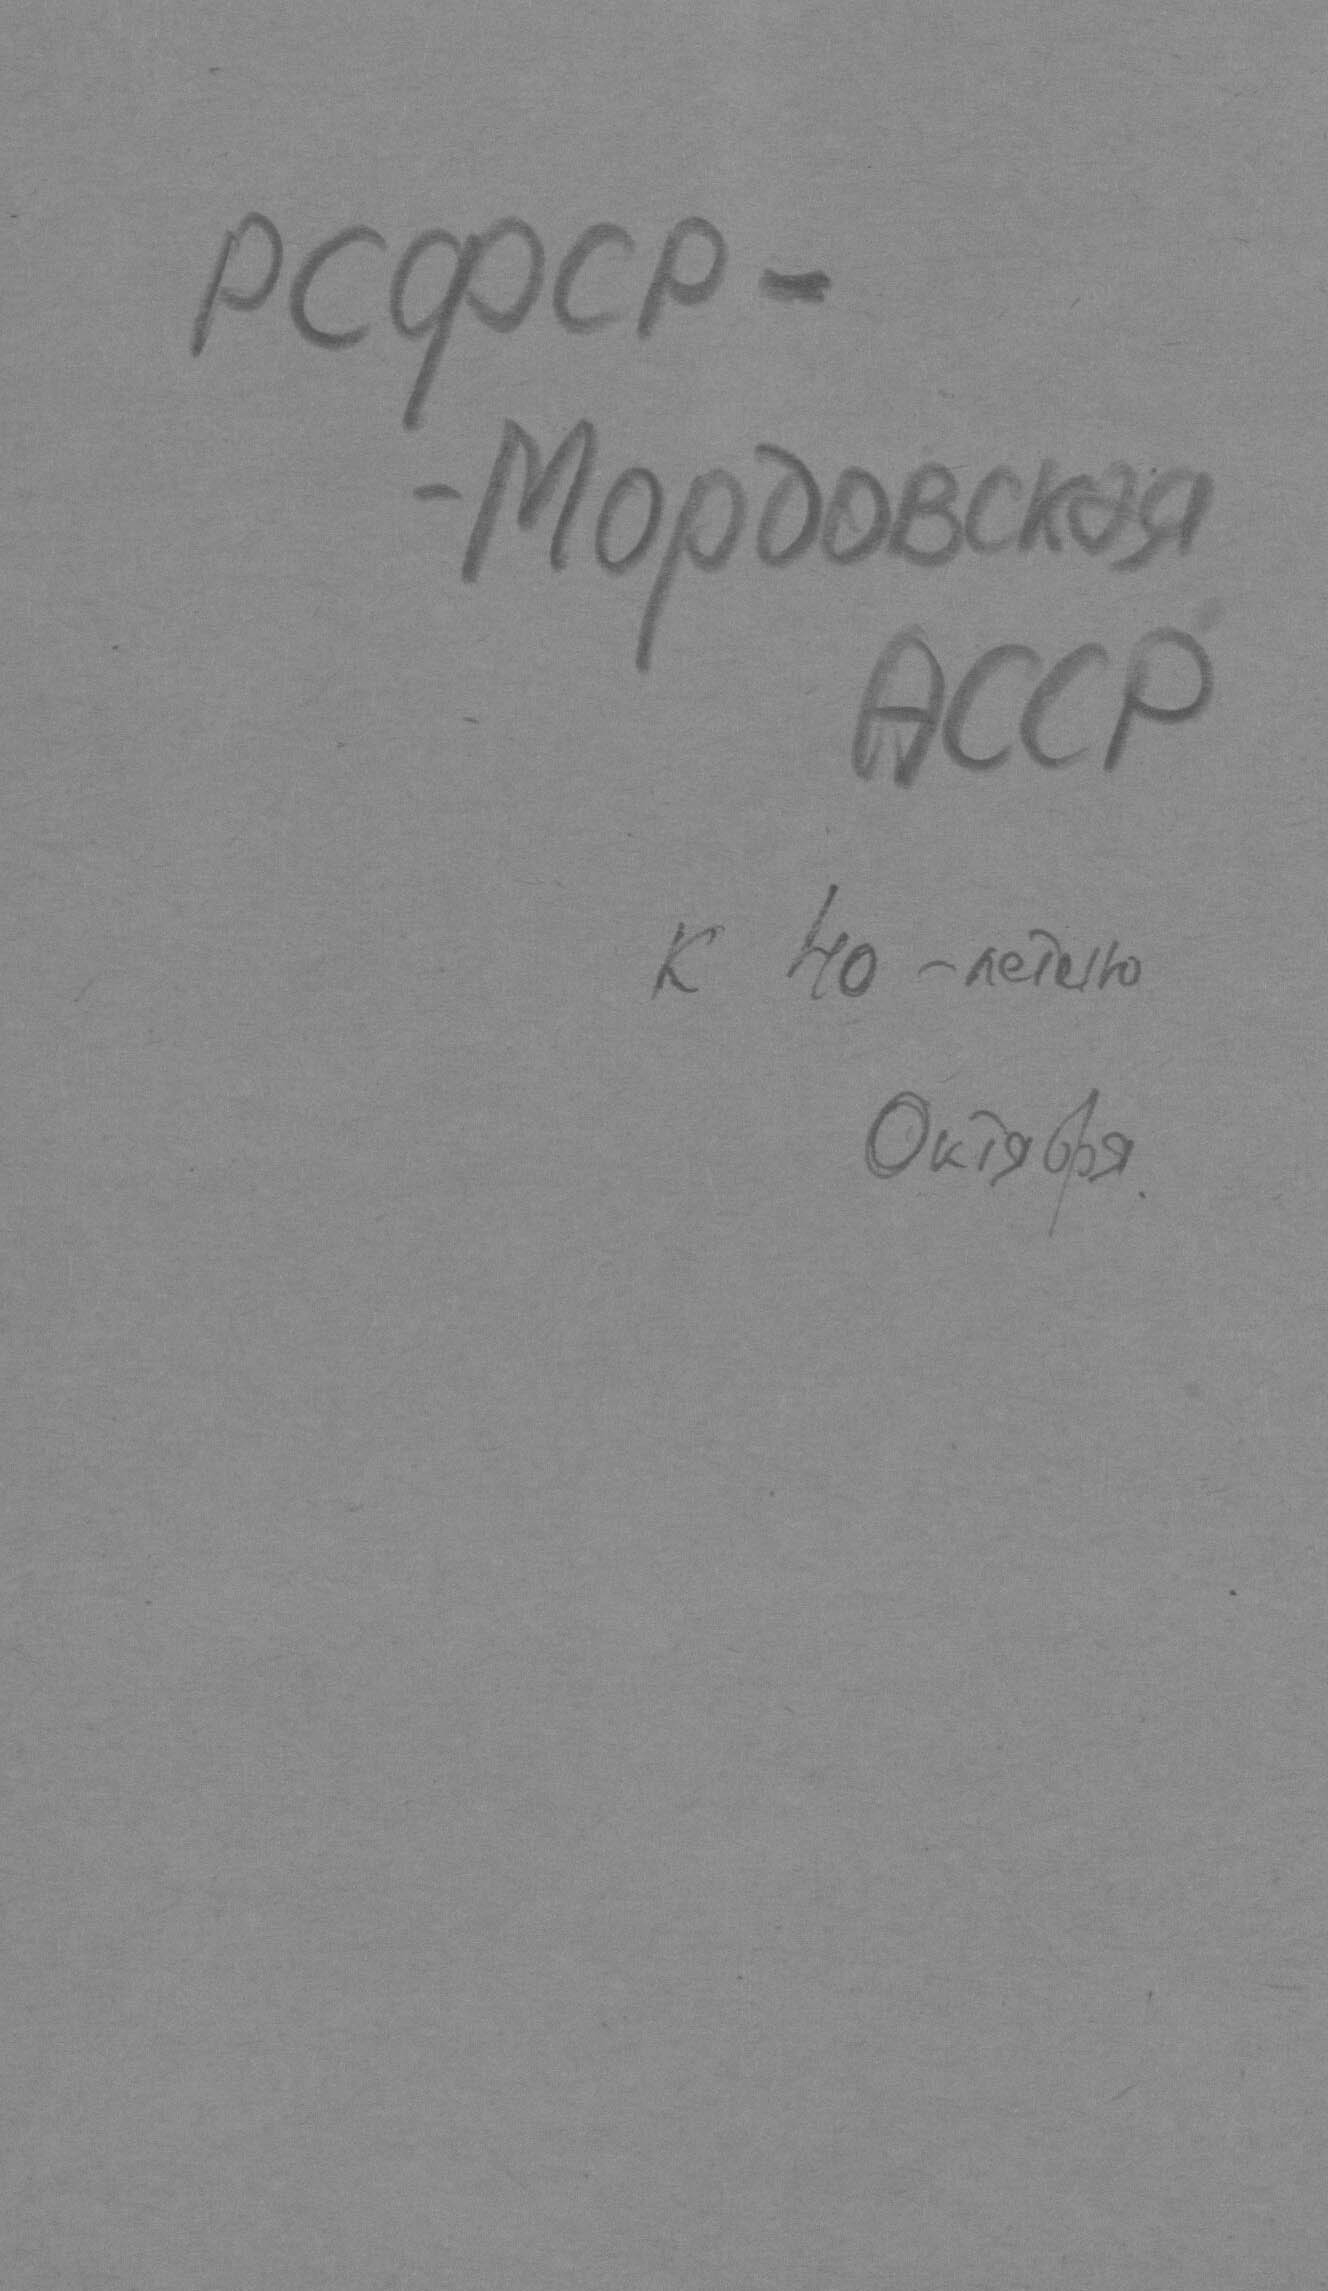 РСФСР -
- Мордовская
АССР
К 40 - летию
Октября.